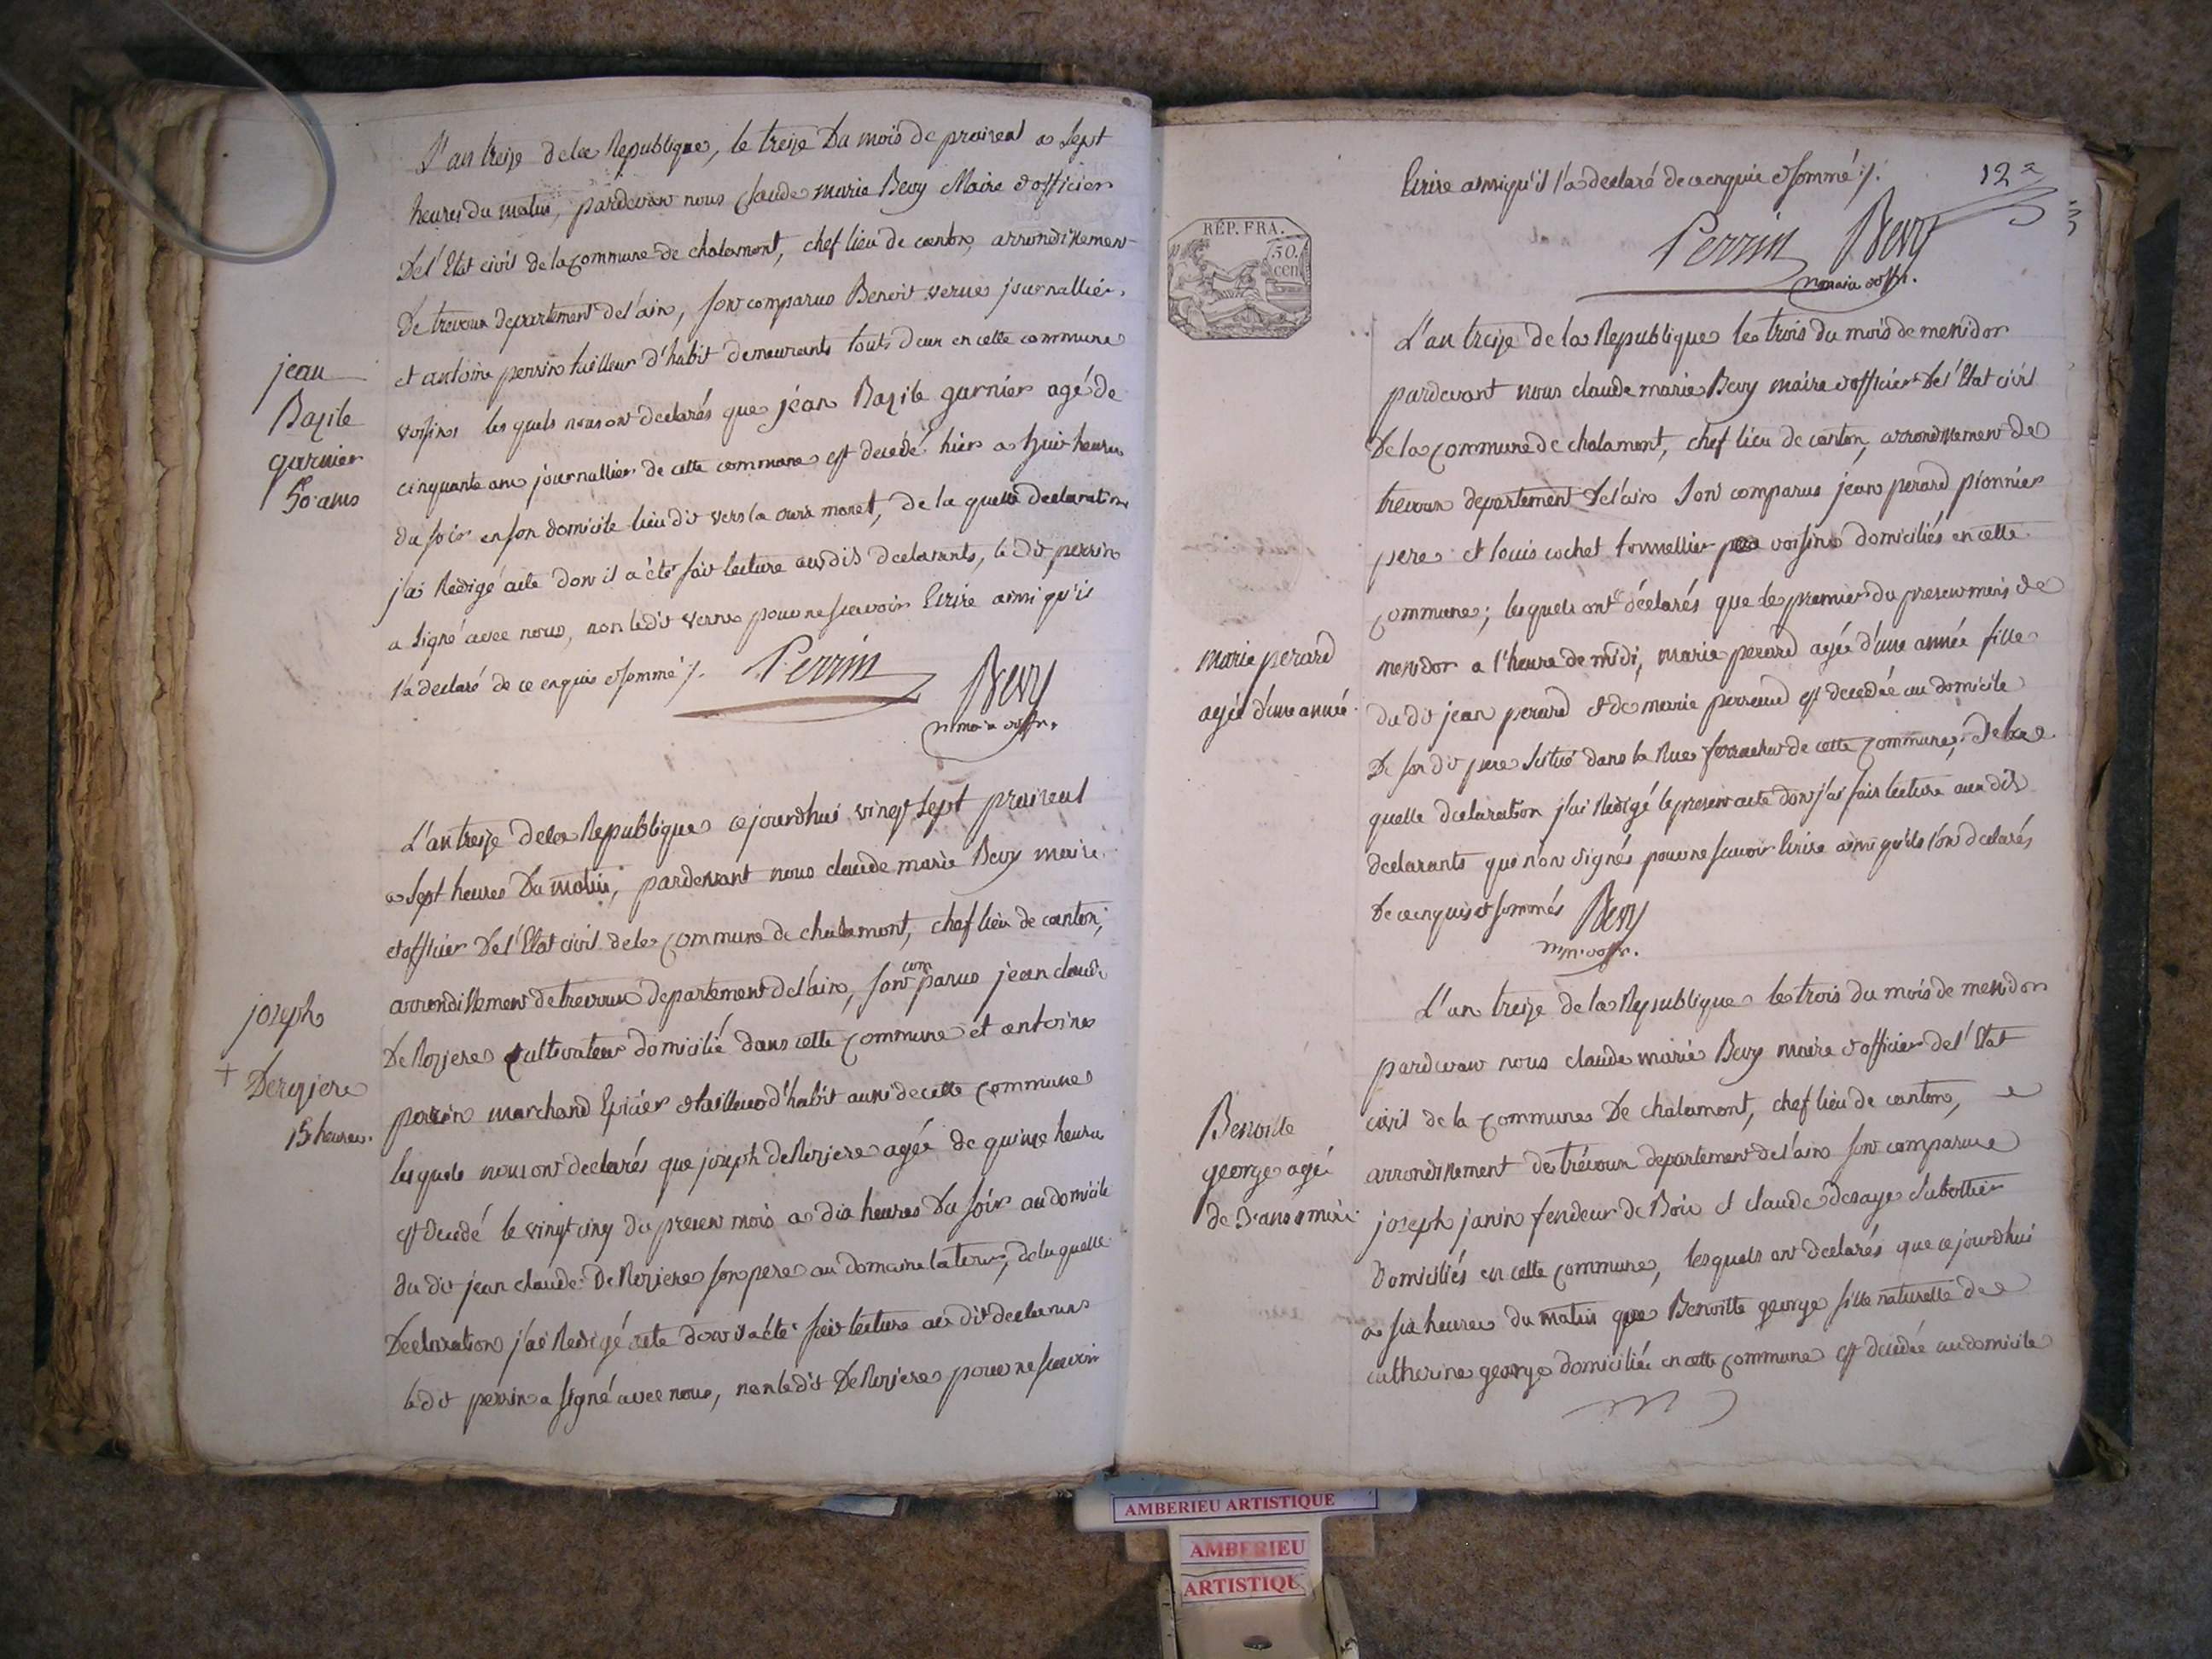 L'an treize de la Republique, le treize Du mois de praireal a sept
heures du matin, pardevan nous Claude marie Bevy Maire & officier
De l'Etat civil de la Commune de chalamont, chef lieu de canton, arrondissement
De trevoux departement de l'ain, son comparus Benoit verne journallier,
et antoine perrin tailleur d'habit demeurants touts deux en cette commune
jean
Bazile
garnier
50 ans
voisins les quels nous ont declarés que jéan Bazile garnier agé de
cinquante ans journallier de cette commune est decédé hier a huit heures
du soir en son domicile lieu dit vers la maret, de la quelle declaration
j'ai Redigé acte don il a été fait lecture audis declarants, le dit perrin
a signé avec nous, non ledit verne pour ne scavoir Ecrire ainsi qu'il
l'a declaré de ce enquis & sommé /.
Perrin
Bevy
m maire & offr.
L'an treize de la Republique cejourdhui vingt sept praireal
a sept heures Du matin, pardevant nous claude marie Bevy maire
et officier De l'Etat civil de la Commune de chalamont, chef lieu de canton,
arrondissement de trevoux departement de l'ain, son comparus jean claude
joseph
+ Deroziere
15 heures.
De Roziere Cultivateur domicilié dans cette Commune et antoine
perrin marchand Epicier & tailleur d'habit aussi de cette Commune
lesquels nous ont declarés que joseph De Roziere agée de quinze heures
est decedé le vingt cinq du presen mois a dix heures Du soir au domicile
du dit jean claude De Roziere son pere au domaine, de la quelle
Declaration j'ai Redigé acte don il a été fait lecture au dit declarans
le dit perrin a signé avec nous, non le dit De Roziere pour ne scavoir
12e
Ecrire ainsi qu'il l'a declaré de ce enquis & sommé /.
RÉP. FRA.
50.
cen.
Perrin Bevy
m maire & offr.
L'an treize de la Republique le trois du mois de messidor
pardevant nous claude marie Bevy maire & officier De l'Etat civil
De la Commune de chalamont, chef lieu de canton, arrondissement de
trevoux departement De l'ain Son comparus jéan perard pionnier
pere et louis cochet tonnellier voisins domiciliés en cette
Commune; lesquels ont déclarés que le premier du presen mois de
marie perard
agée d'une année
messidor a l'heure de midi, marie perard agée d'une année fille
du dit jean perard & de marie perraud est decedée au domicile
De son dit pere situé dans la Rue de cette Commune, De la
quelle declaration j'ai Redigé le presen acte don j'ai fait lecture aux dis
declarants qui n'on signés pour ne scavoir Ecrire ainsi qu'ils l'on declarés
De ce enquis et sommés Bevy
m. m. & offr.
L'an treize de la Republique le trois du mois de messidor
pardevan nous claude marie Bevy maire & officier de l'Etat
Benoitte
george agé
de 3 ans & mi
civil de la Commune De chalamont, chef lieu de canton,
arrondissement de trévoux departement de l'ain son comparus
joseph janin fendeur de Bois et claude desaye sabottier
Domiciliés en cette Commune, lesquels ont declarés que cejourdhui
a six heures du matin que Benoitte george fille naturelle de
catherine george domiciliée en cette Commune est decédée au domicile